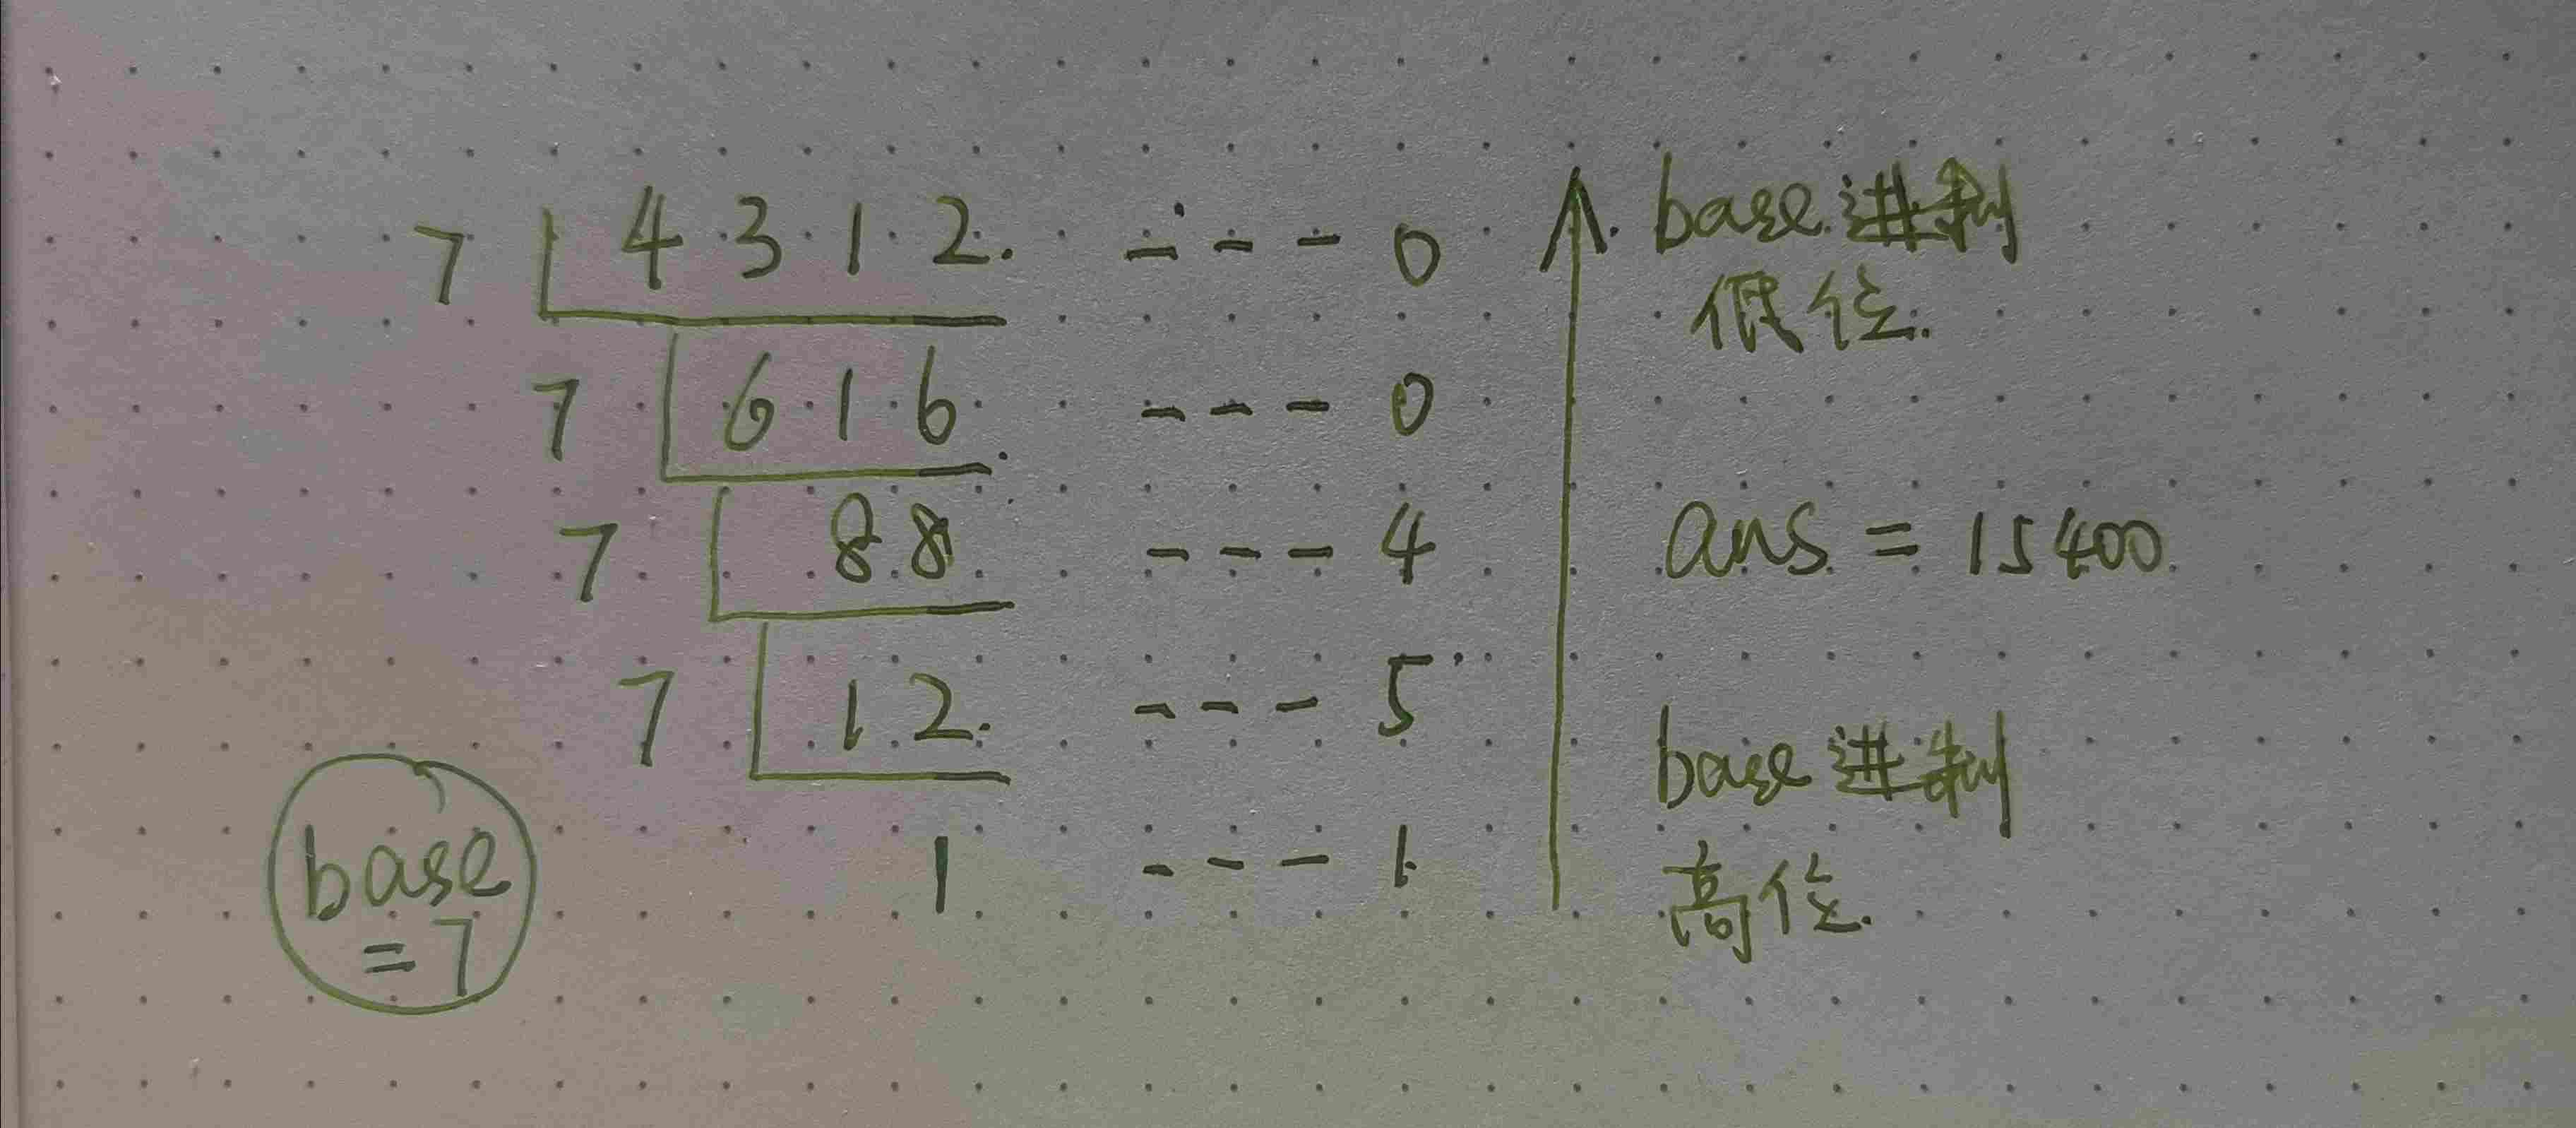 7 4312 --- 0
base进制
低位
7 616 --- 0
7 88 --- 4
ans = 15400
7 12 --- 5
base进制
高位
1 --- 1
base
=7